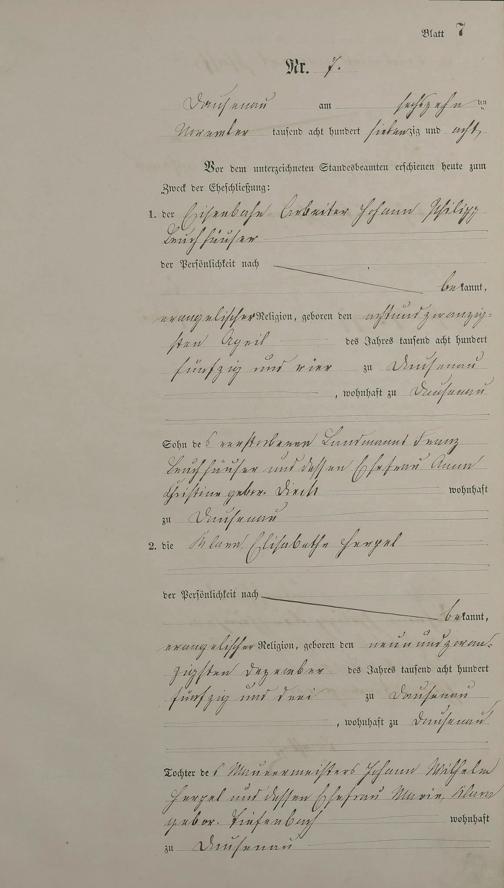 Blatt 7
Nr. 7.
Dausenau am sechszehn ten
November tausend acht hundert siebenzig und acht,
Vor dem unterzeichneten Standesbeamten erschienen heute zum
Zweck der Eheschließung:
1. der Eisenbahn Arbeiter Johann Philipp
der Persönlichkeit nach
bekannt,
evangelischer Religion, geboren den achtundzwanzig-
sten April des Jahres tausend acht hundert
fünfzig und vier zu Dausenau
, wohnhaft zu Dausenau
Sohn des verstorbenen Landmanns Franz
und dessen Ehefrau Anna
Christine gebor. wohnhaft
zu Dausenau
2. die Klara Elisabethe Herpel
der Persönlichkeit nach
bekannt,
evangelischer Religion, geboren den neunundzwan-
zigsten Dezember des Jahres tausend acht hundert
fünfzig und drei zu Dausenau
, wohnhaft zu Dausenau
Tochter des Mauermeisters Johann Wilhelm
Herpel und dessen Ehefrau Marie Klara
gebor. Tiefenbach wohnhaft
zu Dausenau